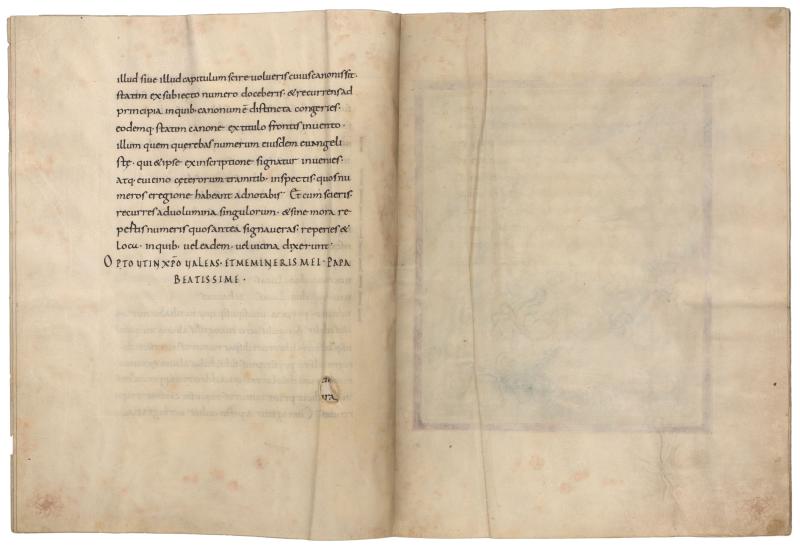 illud siue illud capitulum scire uolueris cuius canonis sit·
statim ex subiecto numero doceberis· & recurrens ad
principia in quib· canonum ē distincta congeries·
eodemq· statim canone ex titulo frontis inuento·
illum quem querebas numerum eiusdem euangeli
stę· qui & ipse ex inscriptione signatur inuenies·
atq· e uicino cęterorum tramitib· inspectis quos nu
meros e regione habeant adnotabis· Et cum scieris·
recurres ad uolumina singulorum· & sine mora re
pertis numeris quos antea signaueras· reperies &
loca· in quib· uel eadem· uel uicina dixerunt·
OPTO UT IN XP̄O UALEAS· ET MEMINERIS MEI· PAPA
BEATISSIME·